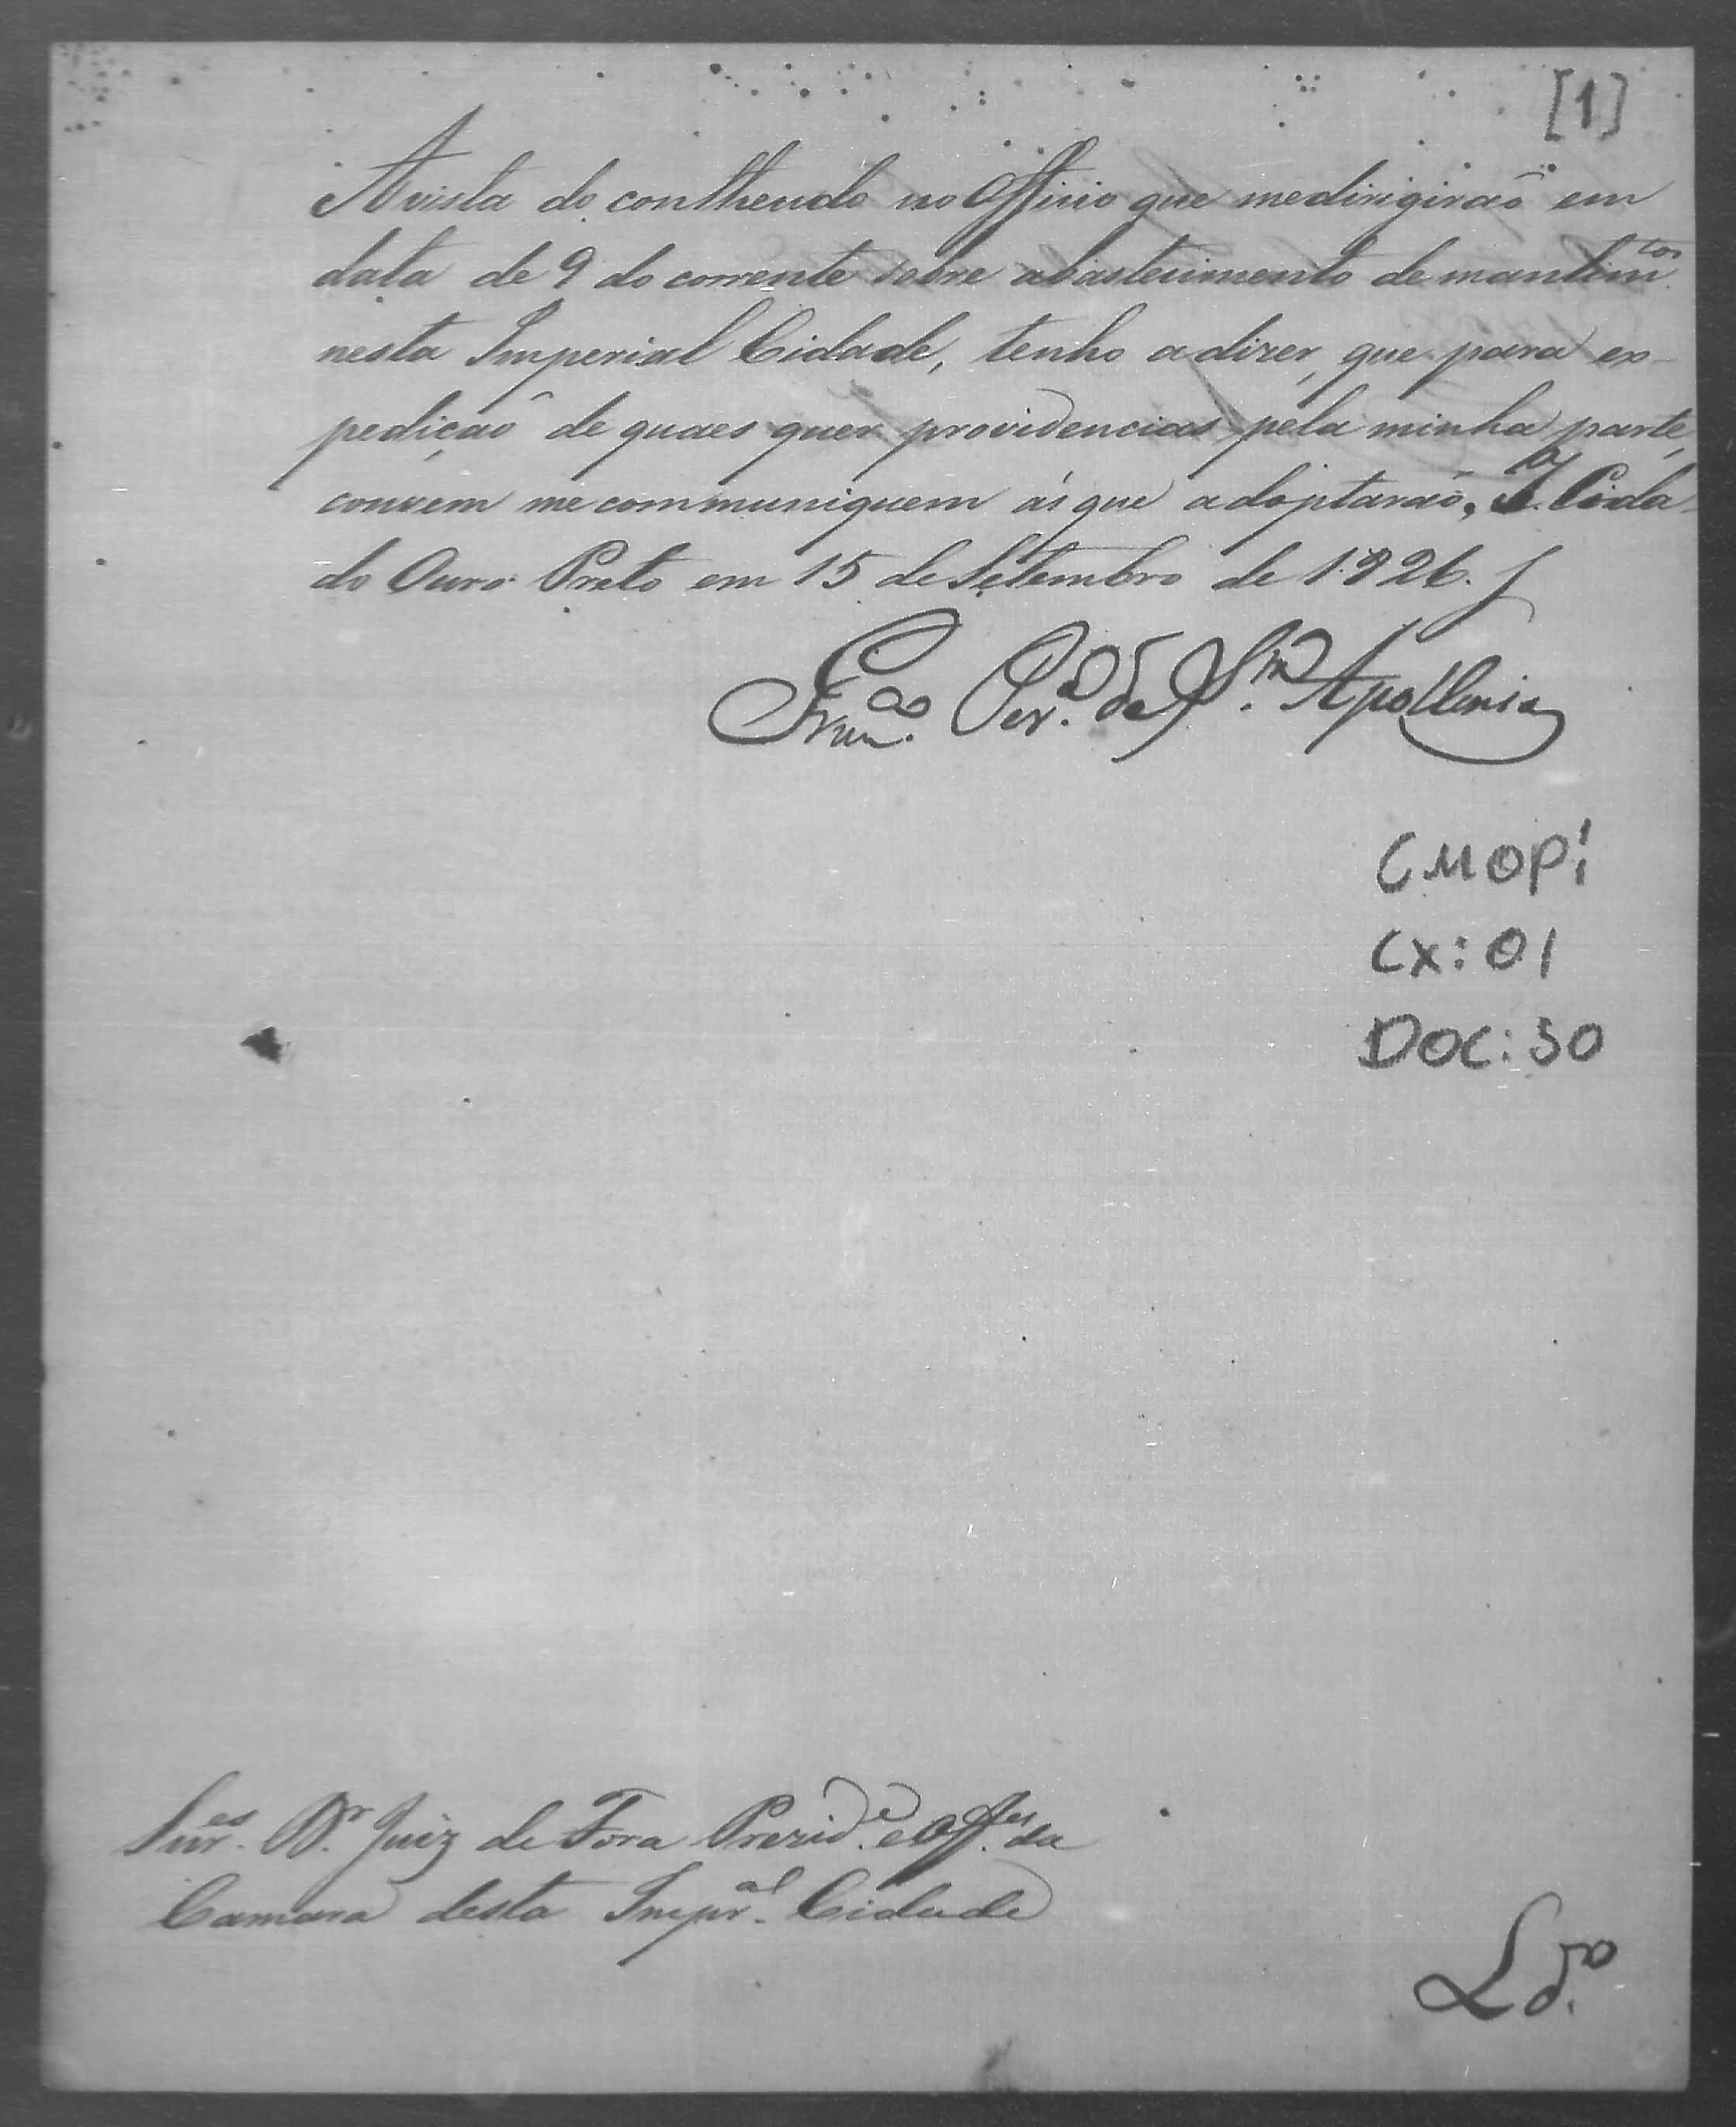 [1]
A vista do contheudo no Officio que me dirigirão em
data de 9 do corrente sobre abastecimento de mantim.tos
nesta Imperial Cidade, tenho a dizer, que para ex-
pedição de quaes quer providencias pela minha parte,
convem me communiquem ás que adoptarão, Cida
do Ouro Preto em 15 de Setembro de 1826.
Fran.co Per.a de S.ta Apollonia
CMOP:
CX: 01
DOC: 30
Snr.es D.r Juiz de Fora Prezid.e e Off.es da
Camara desta Imper.al Cidade
Ld.o